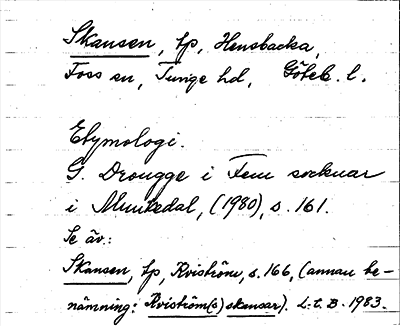 Skansen, tp, Hensbacka,
Foss sn, Tunge hd, Göteb. l.
Etymologi.
G. Drougge i Fem socknar
i Munkedal, (1980), s. 161.
Se äv.:
Skansen, tp, Kviström, s. 166, (annan be-
nämning: Kviström(s) skansar). L.t.B. 1983.